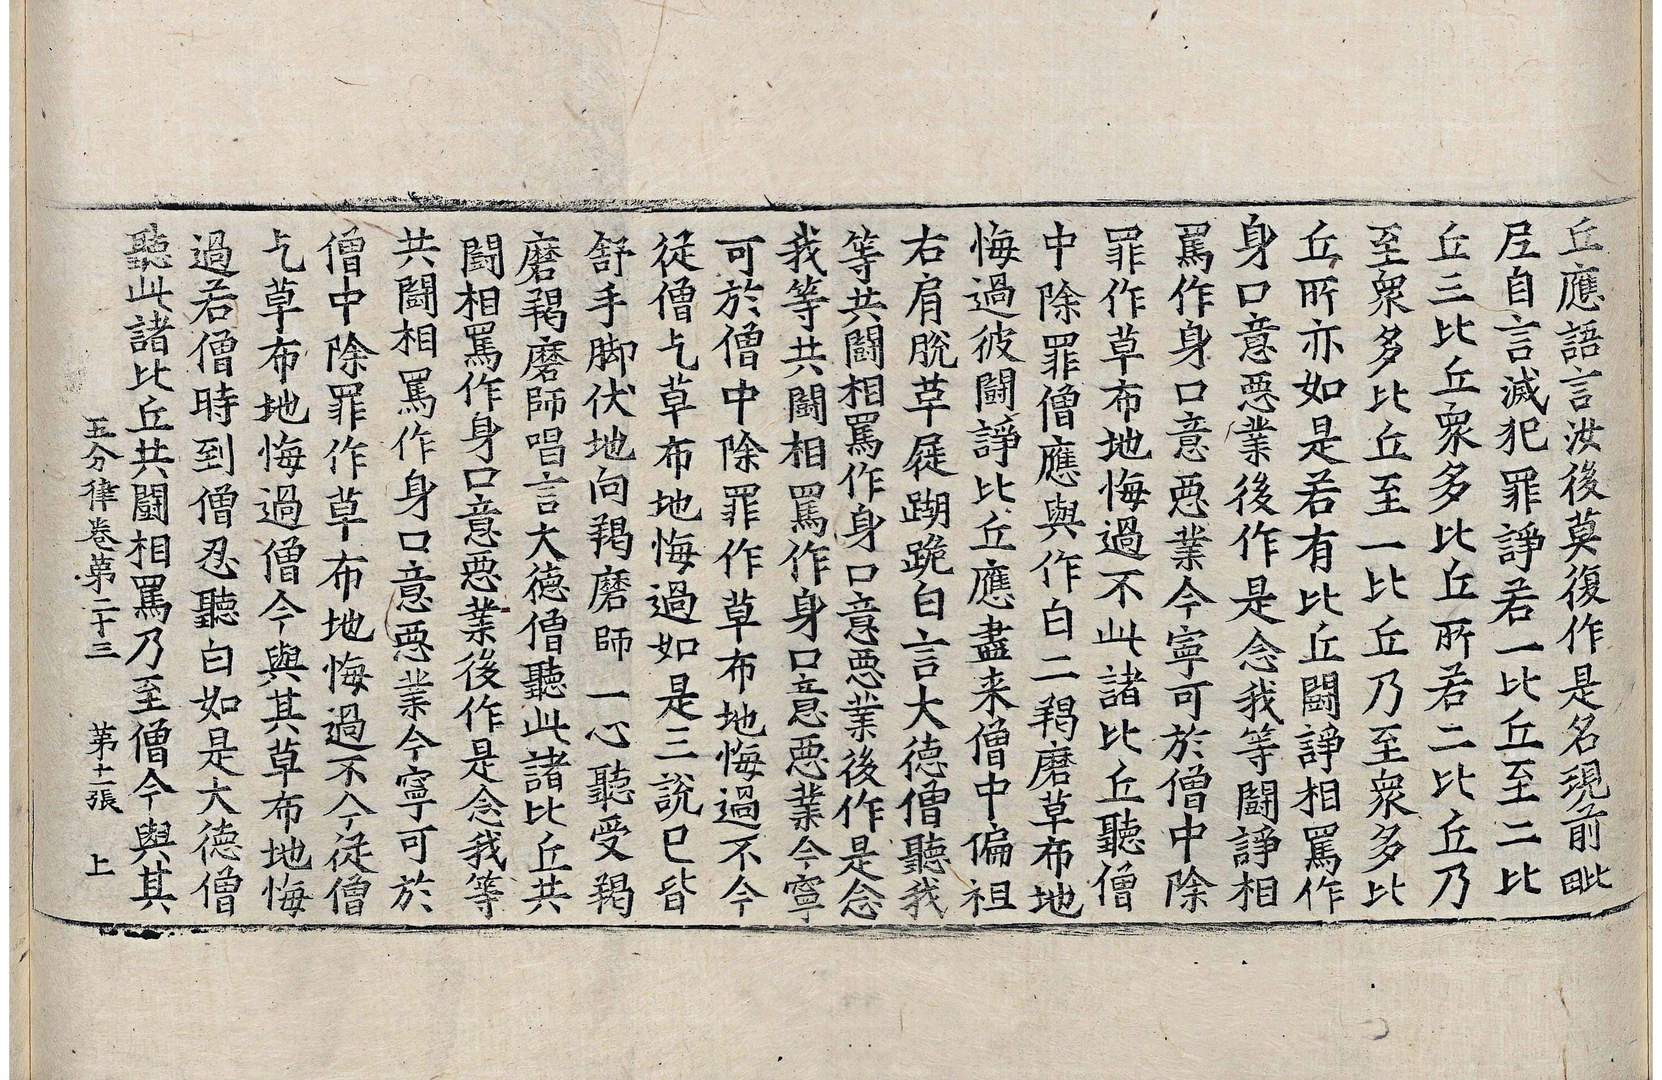 丘應語言汝後莫復作是名現前毗
𡰱自言滅犯罪諍若一比丘至二比
丘三比丘衆多比丘所若二比丘乃
至衆多比丘至一比丘乃至衆多比
丘所亦如是若有比丘鬪諍相罵作
身口意惡業後作是念我等鬪諍相
罵作身口意惡業今寧可於僧中除
罪作草布地悔過不此諸比丘聽僧
中除罪僧應與作白二羯磨草布地
悔過彼鬪諍比丘應盡来僧中偏袒
右肩脫草屣𨄔跪白言大德僧聽我
等共鬪相罵作身口意惡業後作是念
我等共鬪相罵作身口意惡業今寧
可於僧中除罪作草布地悔過不今
從僧乞草布地悔過如是三說已皆
舒手脚伏地向羯磨師一心聽受羯
磨羯磨師唱言大德僧聽此諸比丘共
鬪相罵作身口意惡業後作是念我等
共鬪相罵作身口意惡業今寧可於
僧中除罪作草布地悔過不今從僧
乞草布地悔過僧今與其草布地悔
過若僧時到僧忍聽白如是大德僧
聽此諸比丘共鬪相罵乃至僧今與其
五分律卷第二十三 第十二張 上